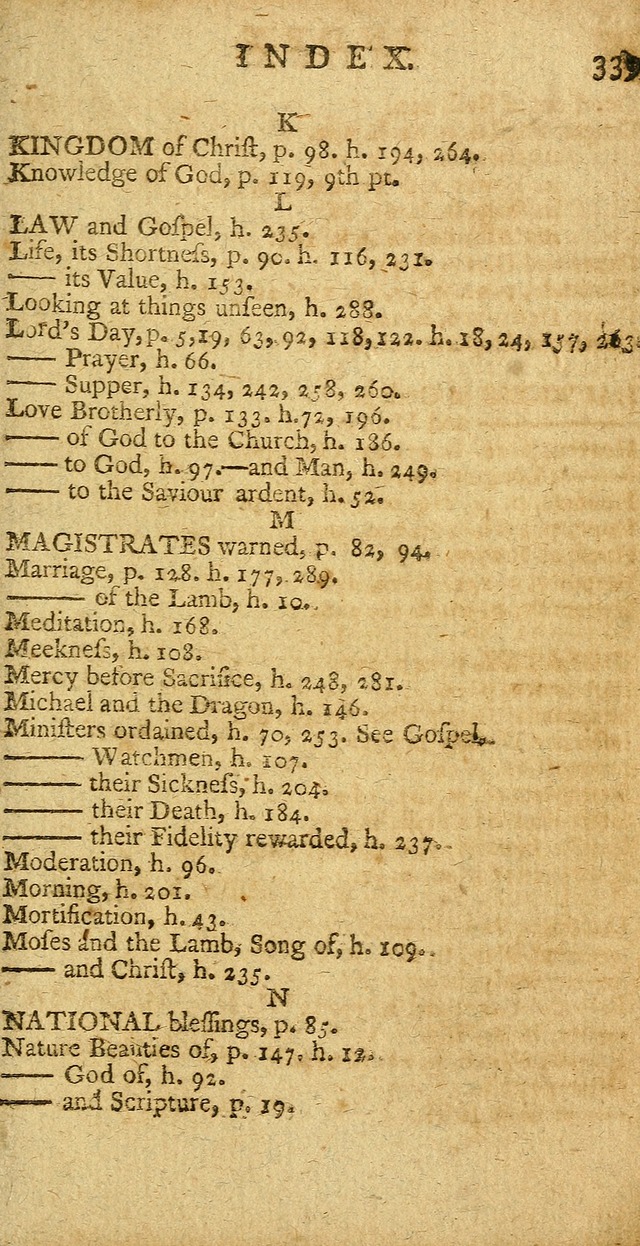 INDEX. 339
K
KINGDOM of Chriſt, p. 98. h. 194, 264.
Knowledge of God, p. 119, 9th pt.
L
LAW and Goſpel, h. 235.
Life, its Shortneſs, p. 90. h. 116, 231.
—— its Value, h. 153.
Looking at things unſeen, h. 288.
Lord's Day, p. 5, 19, 63, 92, 118, 122. h. 18, 24, 157, 263.
—— Prayer, h. 66.
—— Supper, h. 134, 242, 258, 260.
Love Brotherly, p. 133. h. 72, 196.
—— of God to the Church, h. 186.
—— to God, h. 97.—and Man, h. 249.
—— to the Saviour ardent, h. 52.
M
MAGISTRATES warned, p. 82, 94.
Marriage, p. 128. h. 177, 289.
——— of the Lamb, h. 10.
Meditation, h. 168.
Meekneſs, h. 108.
Mercy before Sacrifice, h. 248, 281.
Michael and the Dragon, h. 146.
Miniſters ordained, h. 70, 253. See Goſpel.
——— Watchmen, h. 107.
——— their Sickneſs, h. 204.
——— their Death, h. 184.
——— their Fidelity rewarded, h. 237.
Moderation, h. 96.
Morning, h. 201.
Mortification, h. 43.
Moſes and the Lamb, Song of, h. 109.
—— and Chriſt, h. 235.
N
NATIONAL bleſſings, p. 85.
Nature Beauties of, p. 147. h. 12.
—— God of, h. 92.
—— and Scripture, p. 19.